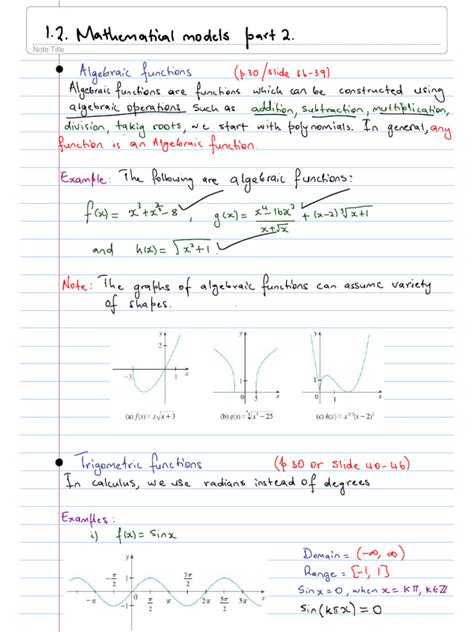 1.2. Mathematical models part 2.
Note Title
• Algebraic functions (p.30/slide 36-39)
Algebraic functions are functions which can be constructed using
algebraic operations such as addition, subtraction, multiplication,
division, taking roots, we start with polynomials. In general, any
function is an Algebraic function.
Example: The following are algebraic functions:
f(x) = x³+x²-8, g(x) = (x⁴-16x²)/(x+√x) + (x-2)∛(x+1)
and h(x) = √(x²+1)
Note: The graphs of algebraic functions can assume variety
of shapes.
y
2
-3
1
x
y
1
0
5
x
y
1
0
1
x
(a) f(x) = x√x + 3
(b) g(x) = ∜x² − 25
(c) h(x) = x^(2/3)(x − 2)²
• Trigometric functions (p.30 or slide 40-46)
In calculus, we use radians instead of degrees
Examples:
i) f(x) = sinx
y
1
-1
0
-π
-π/2
π/2
π
3π/2
2π
5π/2
3π
x
Domain = (-∞, ∞)
Range = [-1, 1]
Sinx = 0, when x = kπ, k∈ℤ
Sin(kπx) = 0